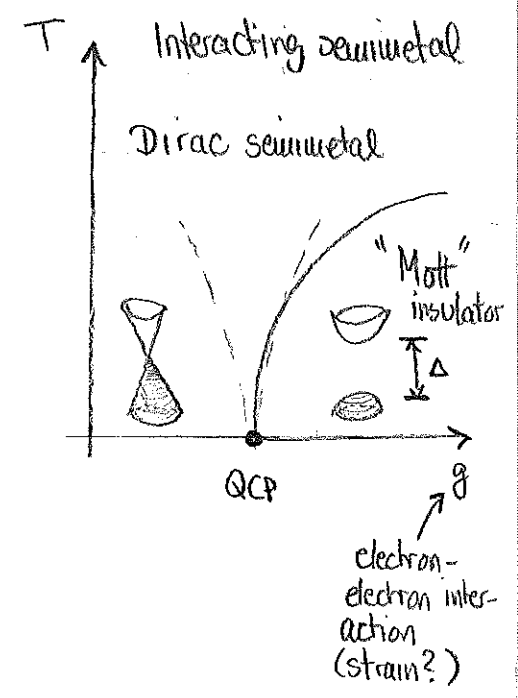 T
Interacting semimetal
Dirac semimetal
"Mott"
insulator
Δ
QCP
g
electron-
electron inter-
action
(strain?)